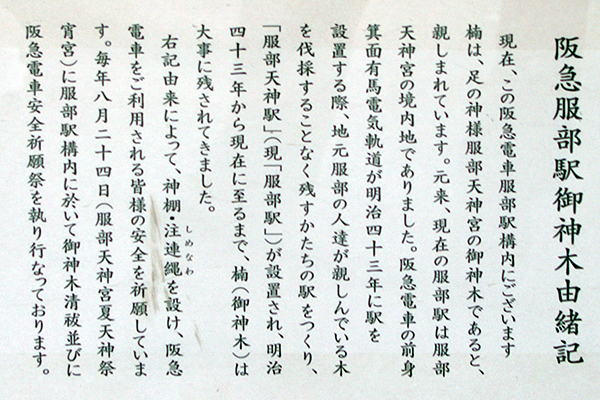 阪急服部駅御神木由緒記
現在、この阪急電車服部駅構内にございます
楠は、足の神様服部天神宮の御神木であると、
親しまれています。元来、現在の服部駅は服部
天神宮の境内地でありました。阪急電車の前身
箕面有馬電気軌道が明治四十三年に駅を
設置する際、地元服部の人達が親しんでいる木
を伐採することなく残すかたちの駅をつくり、
「服部天神駅」（現「服部駅」）が設置され、明治
四十三年から現在に至るまで、楠（御神木）は
大事に残されてきました。
右記由来によって、神棚・注連縄を設け、阪急
しめなわ
電車をご利用される皆様の安全を祈願していま
す。毎年八月二十四日（服部天神宮夏天神祭
宵宮）に服部駅構内に於いて御神木清祓並びに
阪急電車安全祈願祭を執り行なっております。